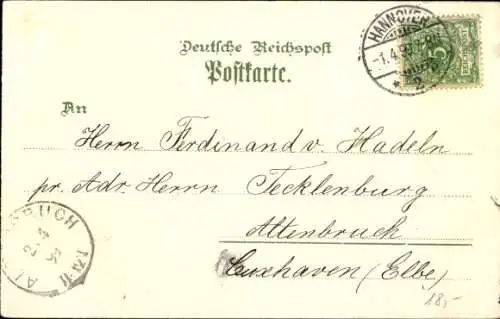 Deutsche Reichspost
Postkarte.
HANNOVER
-1.4.
2
5
An
Herrn Ferdinand v. Hadeln
pr. Adr. Herrn Tecklenburg
Altenbruch
Cuxhaven (Elbe)
18,-